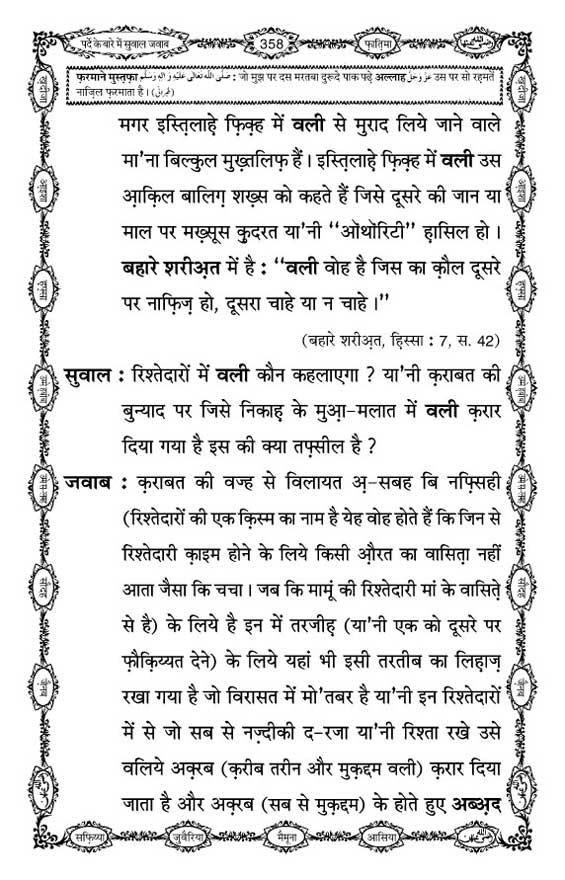 पर्दे के बारे में सुवाल जवाब
358
फ़ातिमा
फ़रमाने मुस्तफ़ा صَلَّى اللّٰهُ تَعَالٰى عَلَيْهِ وَاٰلِهٖ وَسَلَّم : जो मुझ पर दस मरतबा दुरूदे पाक पढ़े अल्लाह عَزَّوَجَلَّ उस पर सो रहमतें
नाज़िल फ़रमाता है। (طبرانی)
मगर इस्तिलाहे फ़िक़्ह में वली से मुराद लिये जाने वाले
मा'ना बिल्कुल मुख़्तलिफ़ हैं। इस्तिलाहे फ़िक़्ह में वली उस
आ़क़िल बालिग़ शख़्स को कहते हैं जिसे दूसरे की जान या
माल पर मख़्सूस क़ुदरत या'नी "ऑथॉरिटी" हासिल हो।
बहारे शरीअ़त में है : "वली वोह है जिस का क़ौल दूसरे
पर नाफ़िज़ हो, दूसरा चाहे या न चाहे।"
(बहारे शरीअ़त, हिस्सा : 7, स. 42)
सुवाल : रिश्तेदारों में वली कौन कहलाएगा ? या'नी क़राबत की
बुन्याद पर जिसे निकाह के मुआ़-मलात में वली क़रार
दिया गया है इस की क्या तफ़्सील है ?
जवाब : क़राबत की वज्ह से विलायत अ़-सबह बि नफ़्सिही
(रिश्तेदारों की एक क़िस्म का नाम है येह वोह होते हैं कि जिन से
रिश्तेदारी क़ाइम होने के लिये किसी औ़रत का वासिता़ नहीं
आता जैसा कि चचा। जब कि मामूं की रिश्तेदारी मां के वासिते़
से है) के लिये है इन में तरजीह (या'नी एक को दूसरे पर
फ़ौक़िय्यत देने) के लिये यहां भी इसी तरतीब का लिहाज़
रखा गया है जो विरासत में मो'तबर है या'नी इन रिश्तेदारों
में से जो सब से नज़्दीकी द-रजा या'नी रिश्ता रखे उसे
वलिये अक़्रब (क़रीब तरीन और मुक़द्दम वली) क़रार दिया
जाता है और अक़्रब (सब से मुक़द्दम) के होते हुए अब्अ़द
सफ़िय्या
जुवैरिया
मैमूना
आसिया